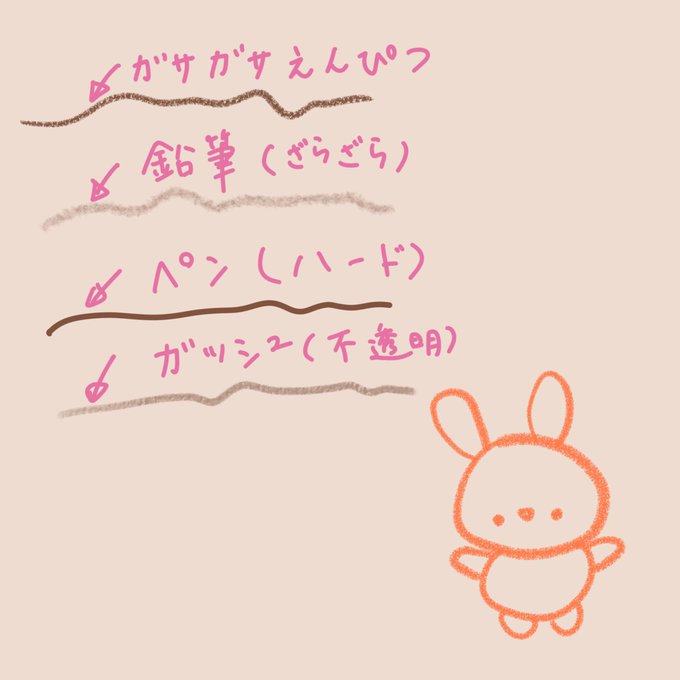 ガサガサえんぴつ
鉛筆(ざらざら)
ペン(ハード)
ガッシ2(不透明)